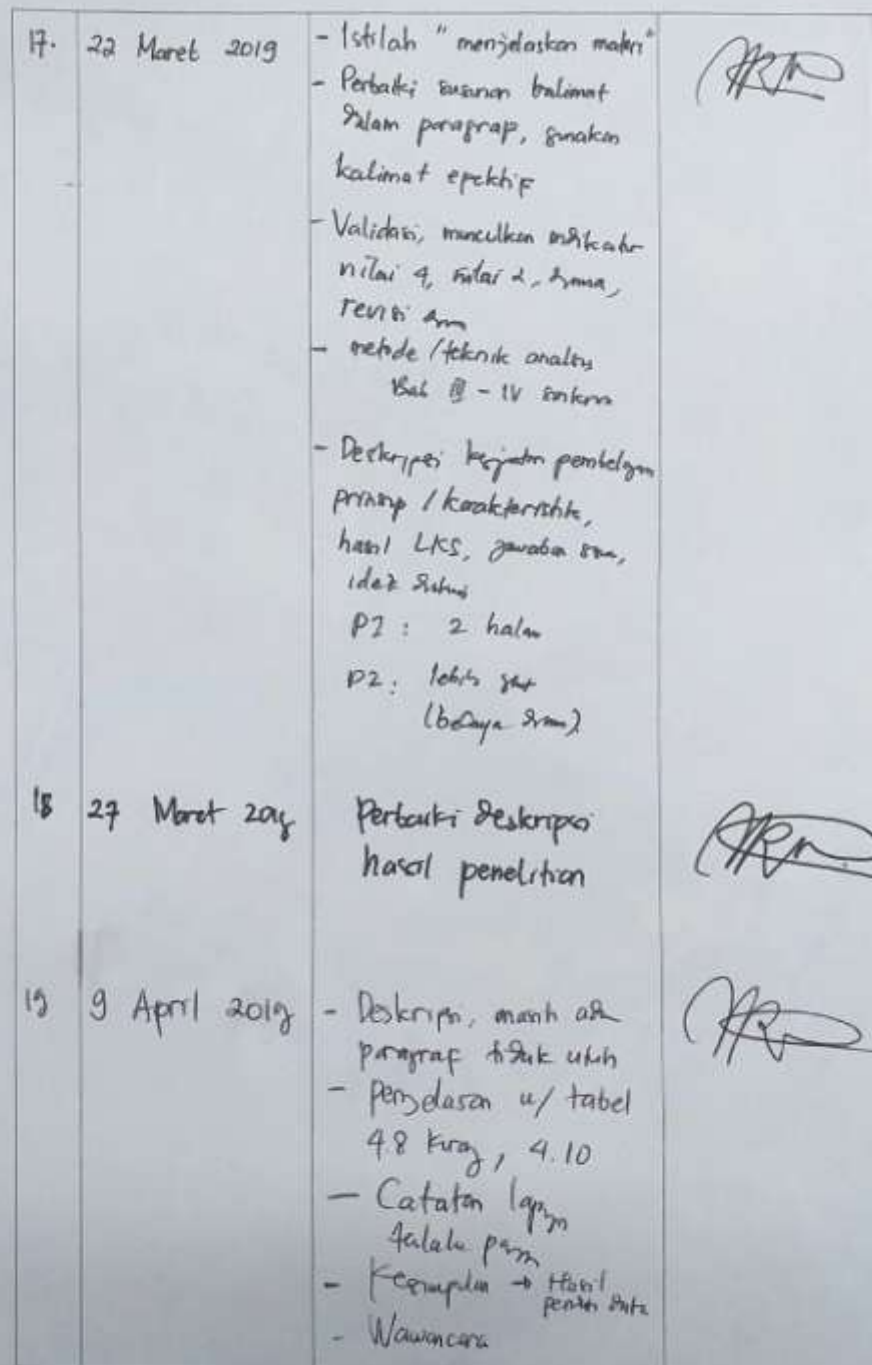 17. 22 Maret 2019 - Istilah " menjelaskan materi"
- Perbaiki susunan kalimat
dalam paragrap, gunakan
kalimat epektif
- Validasi, munculkan indikator
nilai 4, nilai 2,
revisi
- metode / teknik analisis
Bab III - IV
- Deskripsi pembelajaran
prinsip / karakteristik,
hasil LKS, jawaban siswa,
P1 : 2 halam
P2 : lebih
18 27 Maret 2019 Perbaiki deskripsi
hasil penelitian
19 9 April 2019 - Deskripsi, masih ada
paragraf tidak utuh
- penjelasan u/ tabel
4.8 kurang, 4.10
- Catatan lapangan
- Kesimpulan → Hasil
- Wawancara